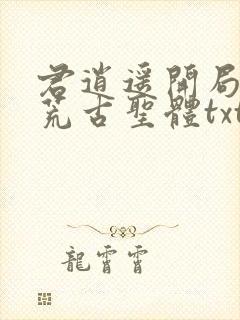 君逍遥開局
荒古聖體txt
龍霄霄